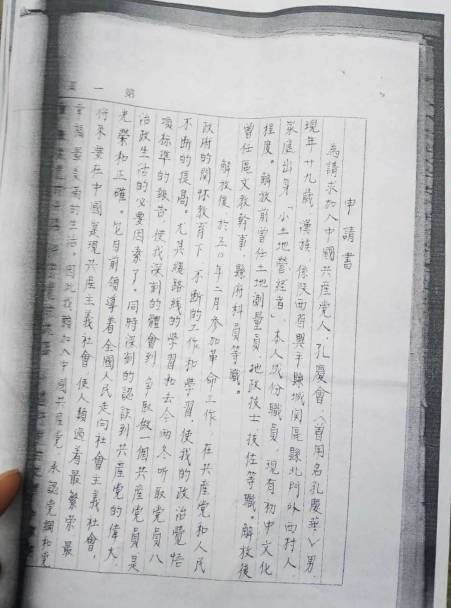 申請書
為請求加入中國共産党人，孔慶會，（曾用名孔慶華）男，
現年廿九歲，漢族，係陝西省興平縣城関區縣北門外西村人，
家庭出身「小土地營經者」，本人成份職員，現有初中文化
程度。解放前曾任土地測量員，地政技士，技佐等職。解放後
曾任區文教幹事，縣府科員等職。
解放後於五〇年二月参加革命工作，在共産党和人民
政府的関怀教育下，不断的工作和學習，使我的政治覺悟
不断的提高。尤其總路線的學習和去今兩冬听取党員八
項标準的報告，使我深刻的體會到，争取做一個共産党員是
治政生活的必要因素了。同時深刻的認識到共産党的偉大，
光榮和正確。它目前領導着全國人民走向社會主義社會，
将來要在中國实現共産主義社會，使人類過着最繁荣最
幸福最美丽的生活。因此我願加入中國共産党，承認党綱和党
第一頁